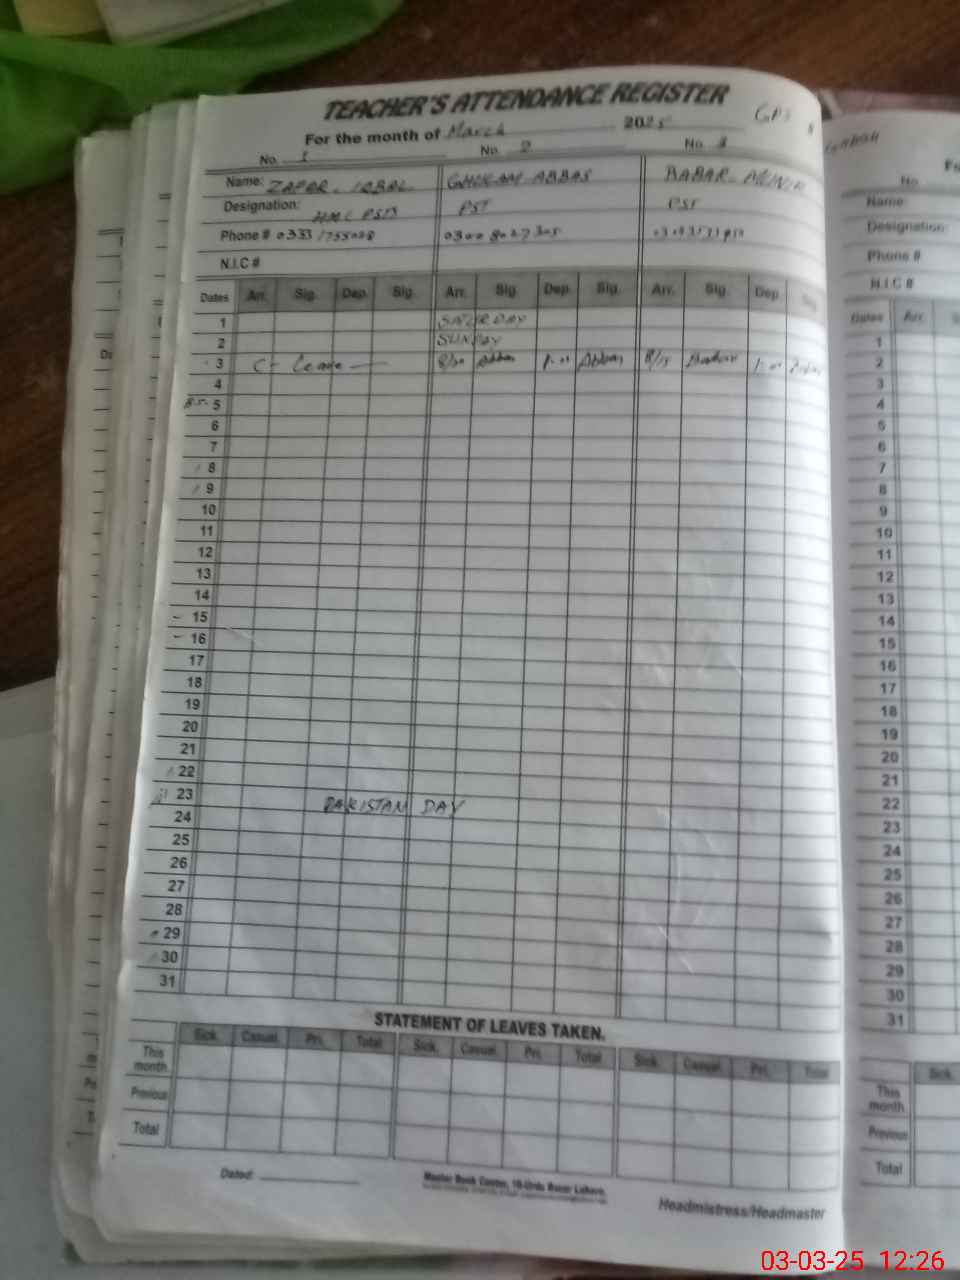 TEACHER'S ATTENDANCE REGISTER
For the month of March 2025 GPS
No. 1 No. 2 No. 3
Name: ZAFAR IQBAL GHULAM ABBAS BABAR MUNIR
Designation: PST PST
Phone # 0333
N.I.C #
Dates Arr. Sig. Dep. Sig. Arr. Sig. Dep. Sig. Arr. Sig. Dep. Sig.
1 SATURDAY
2 SUNDAY
3 C- Leave Abbas Abbas 8/15
4
5
6
7
8
9
10
11
12
13
14
15
16
17
18
19
20
21
22
23 PAKISTAN DAY
24
25
26
27
28
29
30
31
STATEMENT OF LEAVES TAKEN.
Sick. Casual. Pri. Total Sick. Casual. Pri. Total Sick. Casual. Pri. Total
This month
Previous
Total
Dated:
Master Book Center, 10-Urdu Bazar Lahore.
Headmistress/Headmaster
No.
Name:
Designation:
Phone #
N.I.C #
Dates Arr.
1
2
3
4
5
6
7
8
9
10
11
12
13
14
15
16
17
18
19
20
21
22
23
24
25
26
27
28
29
30
31
Sick.
This month
Previous
Total
03-03-25 12:26